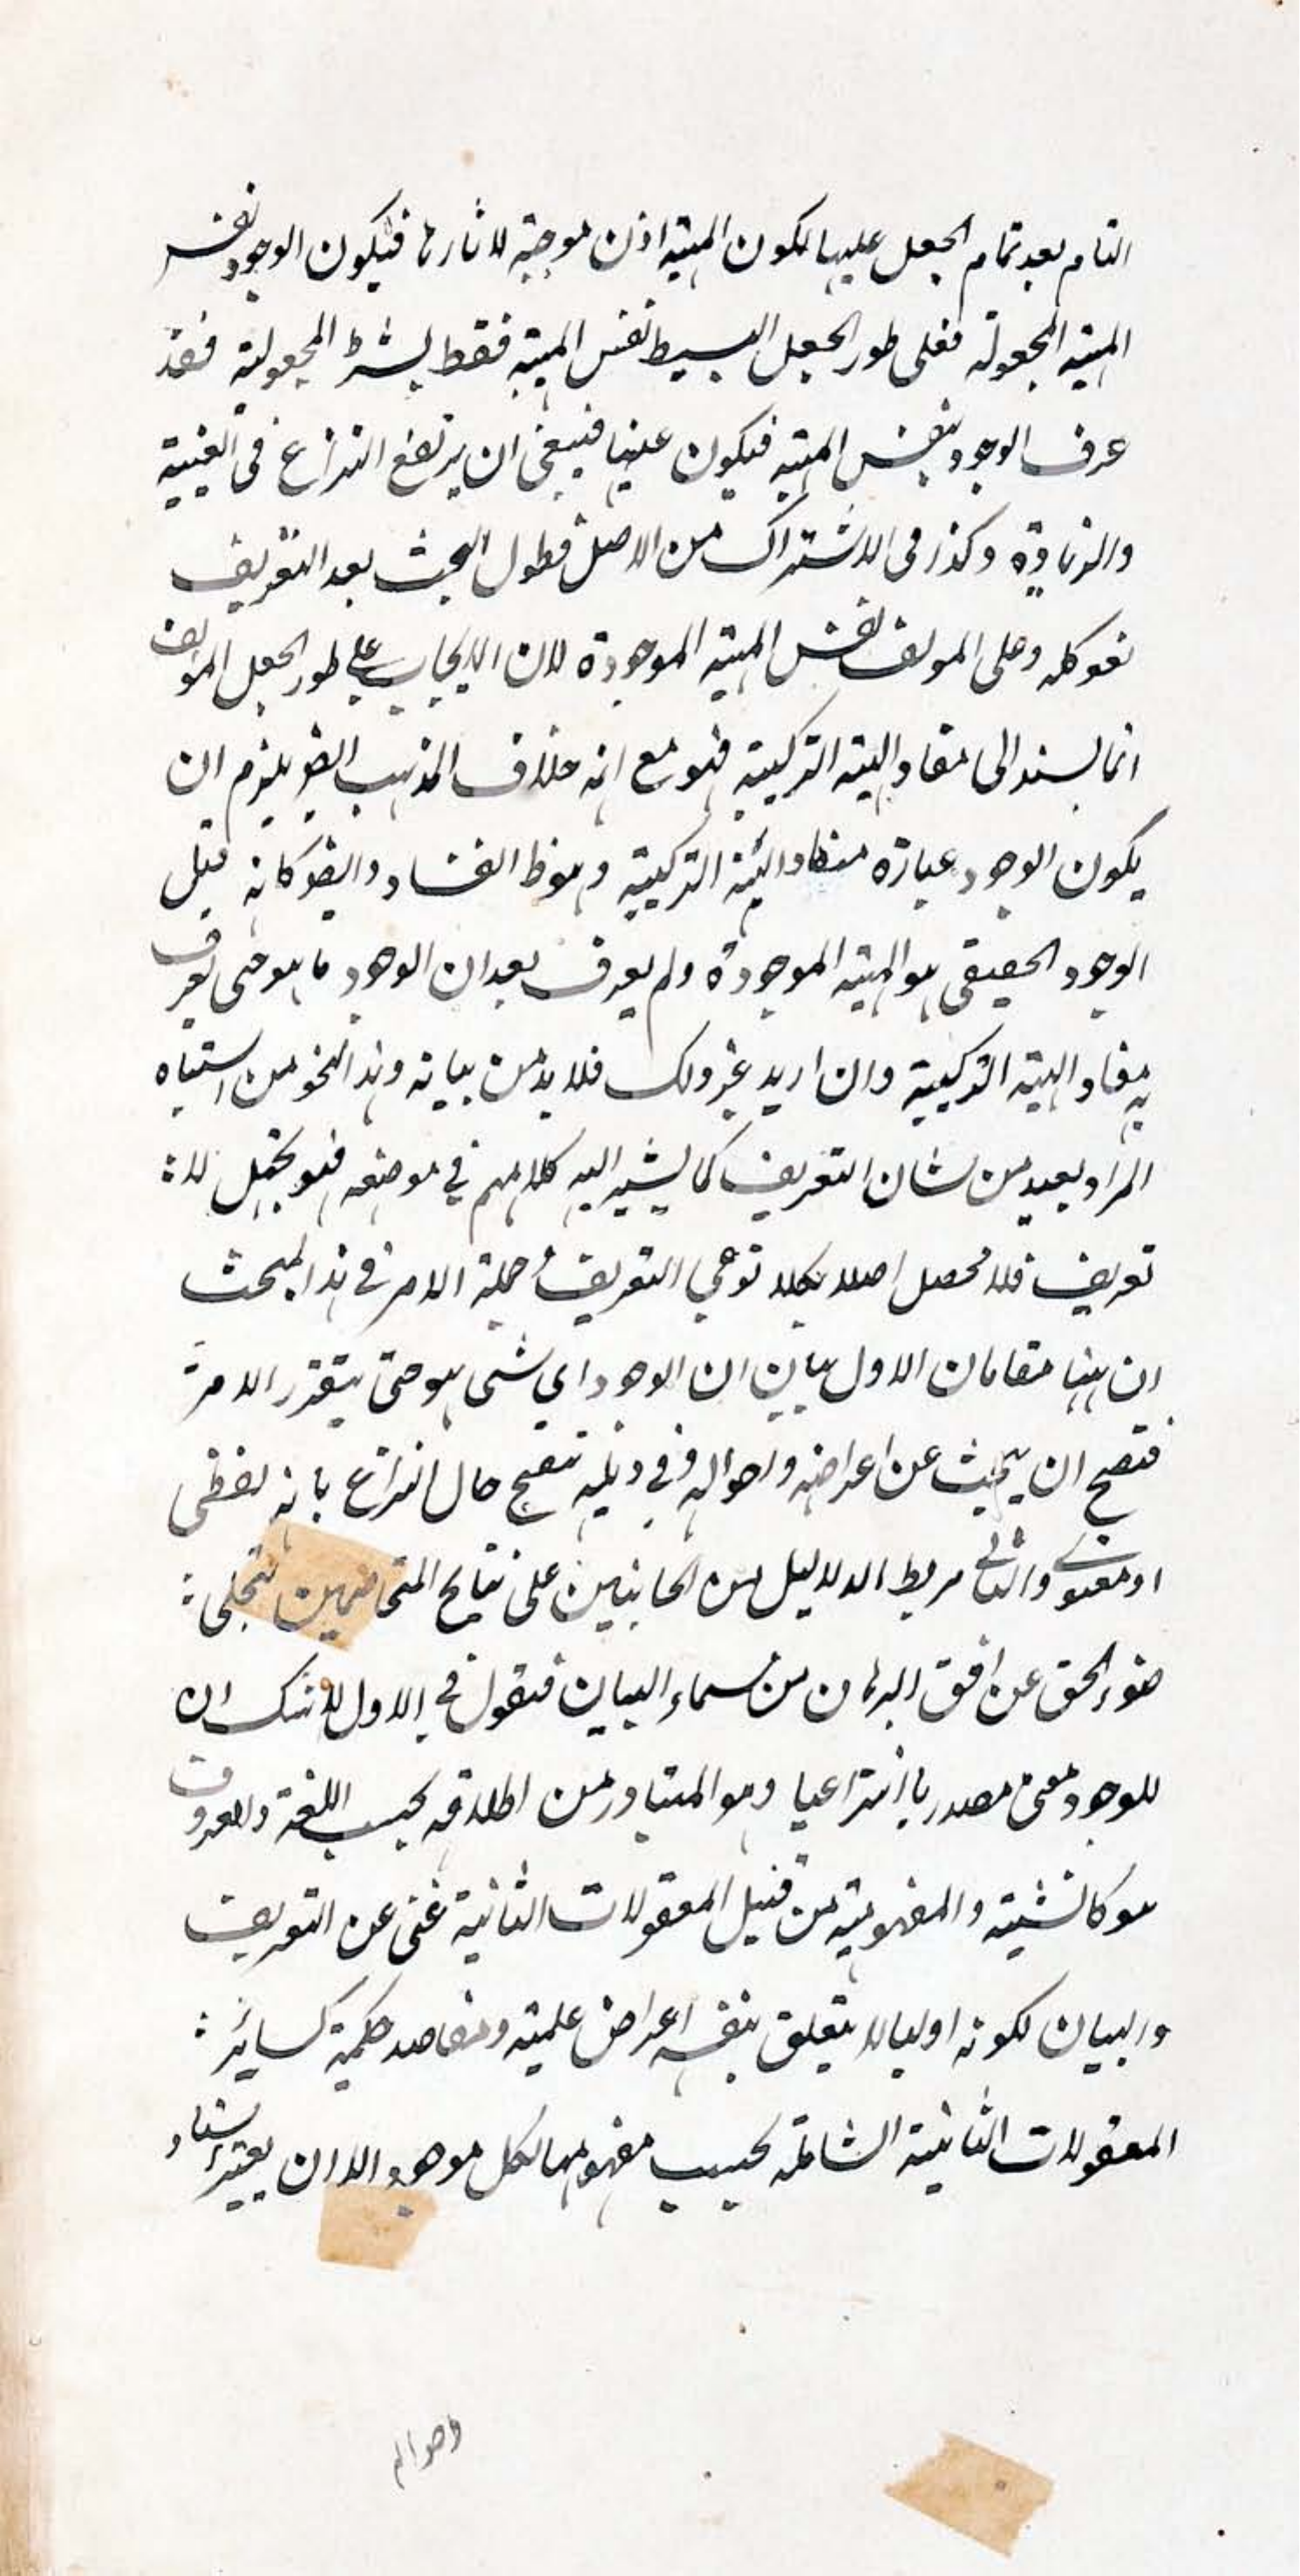 التام بعد تمام الجعل عليها لكون المهية اذن موجبة لاثارها فيكون الوجود نفس
المهية المجعولة فعلى طور الجعل البسيط نفس المهية فقط بشرط المجعولية فقد
عرف الوجود بنفس المهية فيكون عينها فينبغى ان يرتفع النزاع فى العينية
والزيادة وكذا فى الاشتراك من الاصل فطول البحث بعد التعريف
لغو كله وعلى المولف نفس المهية الموجودة لان الايجاب على طور الجعل المؤلف
انما يستند الى مفاد الهيئة التركيبية فهو مع انه خلاف المذهب ايضو يلزم ان
يكون الوجود عبارة مفاد الهيئة التركيبية وهو ظ الفساد وايضو كانه قيل
الوجود الحقيقى هو المهية الموجودة ولم يعرف بعد ان الوجود ما هو حتى يعرف
به مفاد الهيئة التركيبية وان اريد غير ذلك فلا بد من بيانه وهذا النحو من اشتباه
المراد بعيد من شان التعريف كما يشير اليه كلامهم في موضعه فهو تجهيل لا
تعريف فلا محصل اصلا لكلا نوعي التعريف جملة الامر في هذا المبحث
ان ههنا مقامان الاول بيان ان الوجود اي شى هو حتى يتقرر الامر
فتصح ان يبحث عن اعراضه واحواله وفي ذيله تنقيح حال النزاع بانه لفظى
او معنوى والثانى مربط الدلايل من الجانبين على نتايح المتخاصمين لتجلى
ضوء الحق عن افق البرهان من سماء البيان فنقول في الاول لا شك ان
للوجود معنى مصدريا انتزاعيا وهو المتبادر من اطلاقه بحسب اللغة والعرف
هو كالشيئية والمفهومية من قبيل المعقولات الثانية غنى عن التعريف
والبيان لكونه اوليا لا يتعلق بنفسه اعراض علمية ومقاصد حكمية كسائر
المعقولات الثانية الشاملة بحسب مفهومها لكل موجود الا ان يعتبر استناد